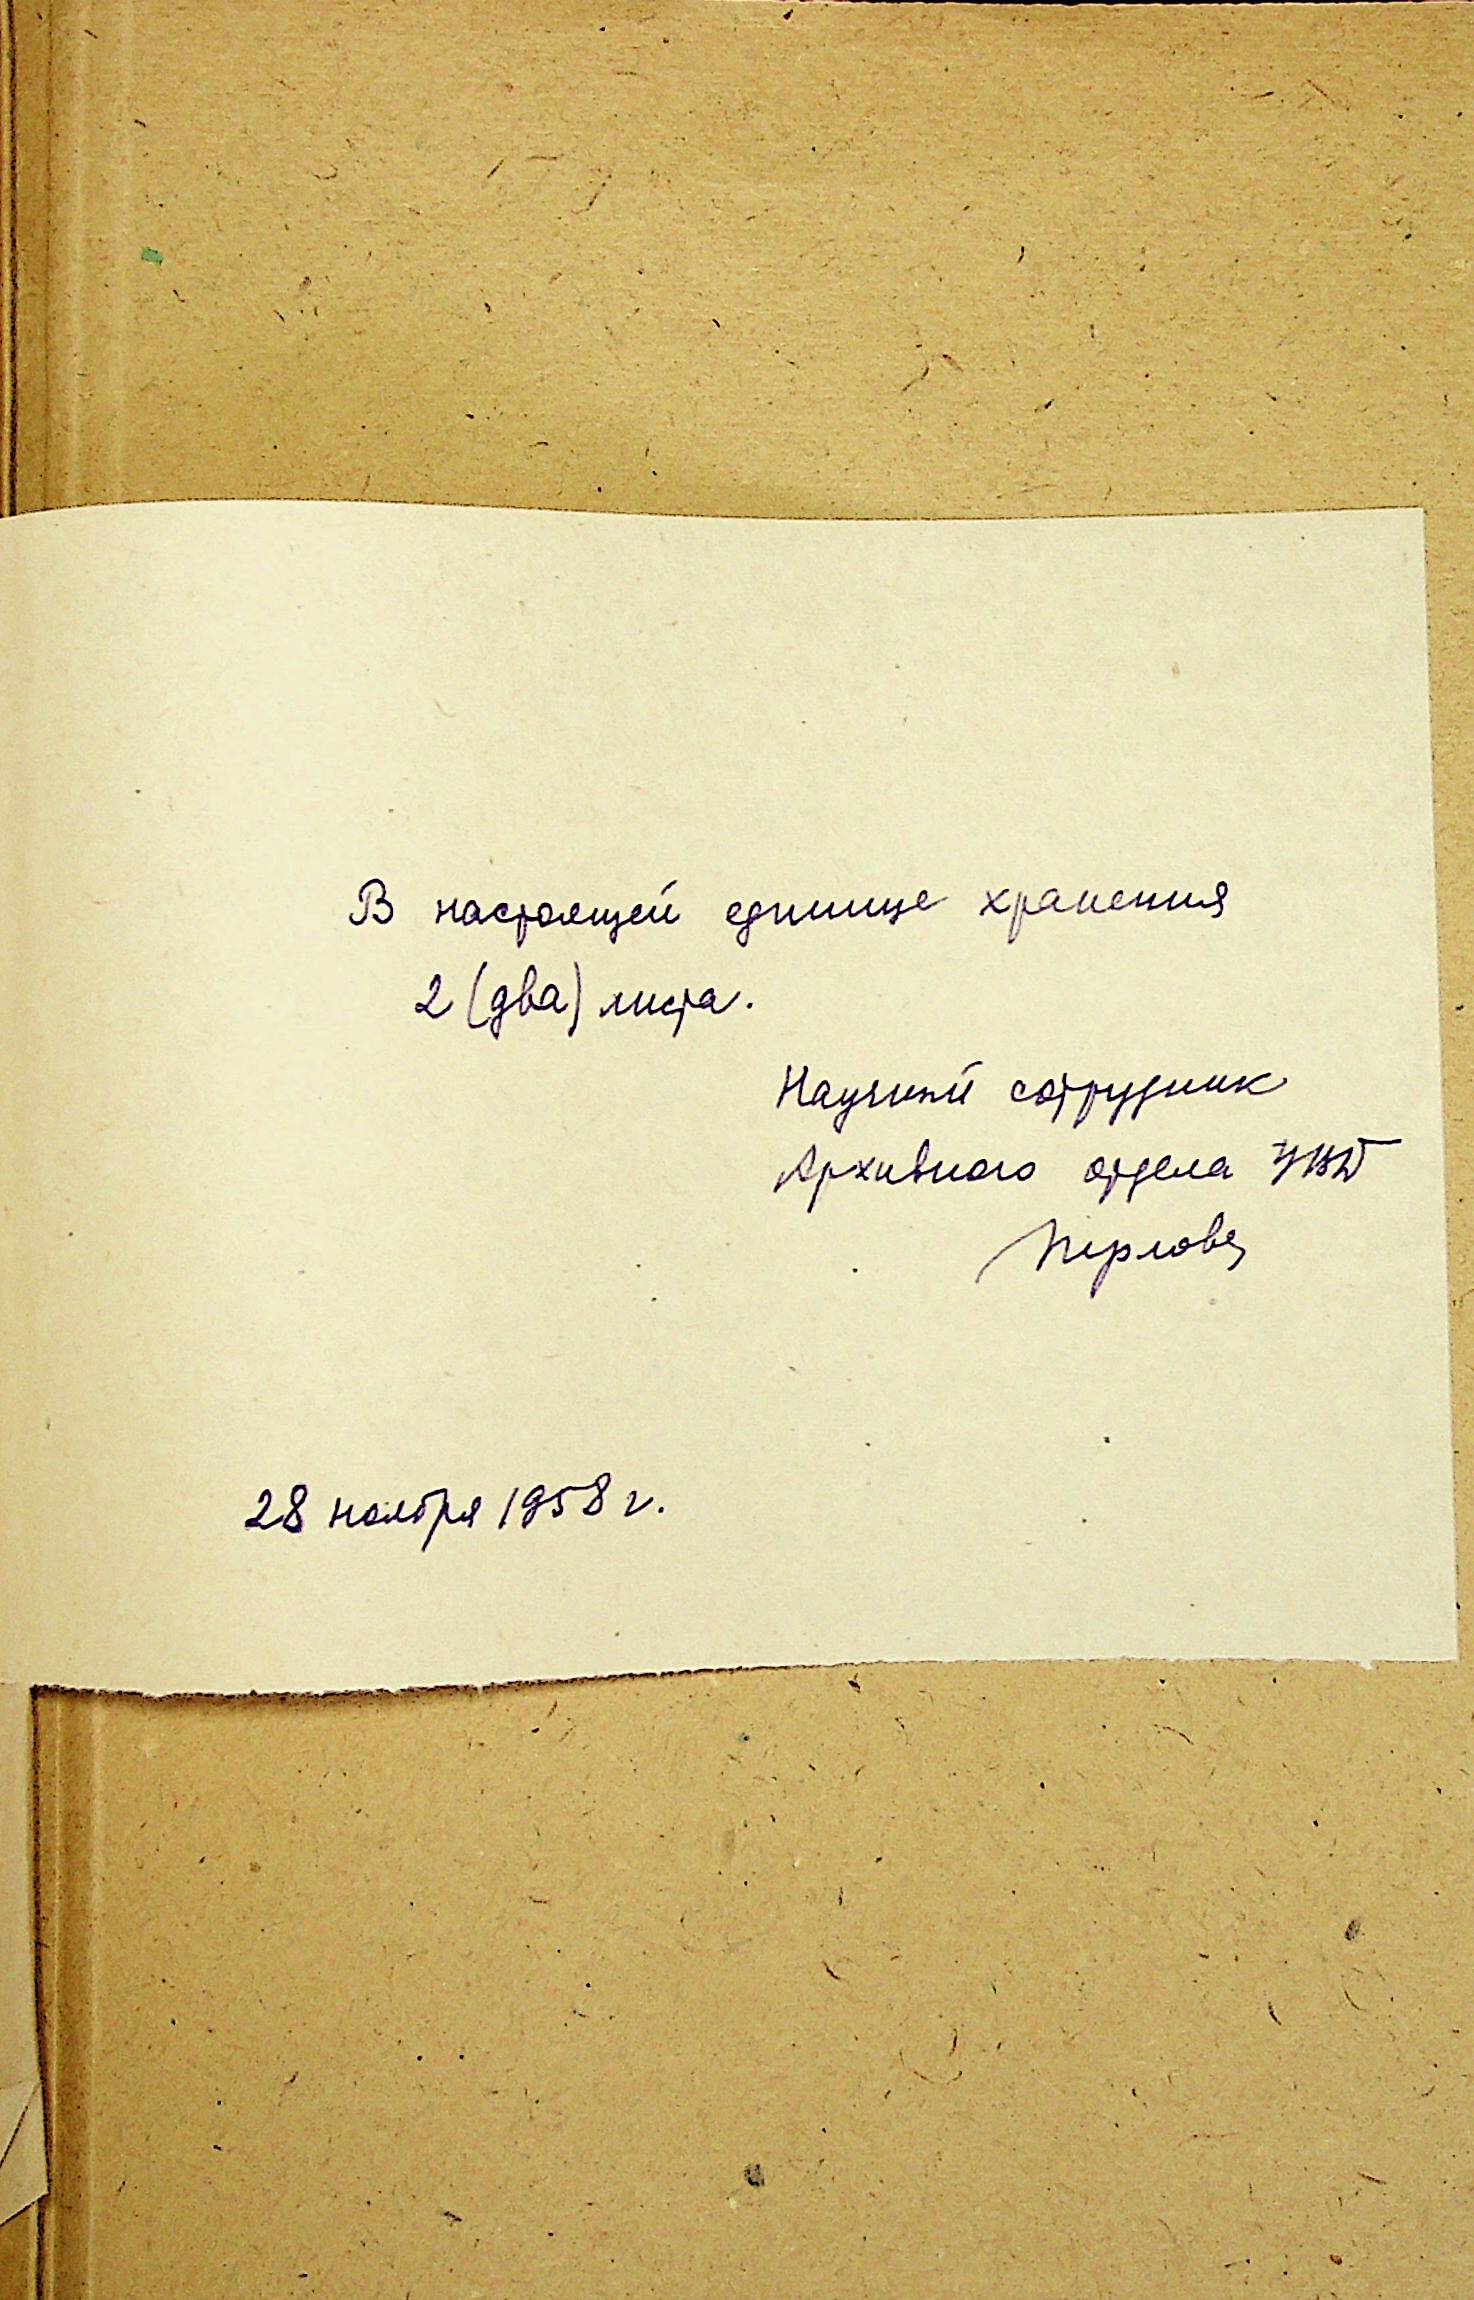 В настоящей единице хранения
2 (два) листа.
Научный сотрудник
Архивного отдела УВД
28 ноября 1958 г.